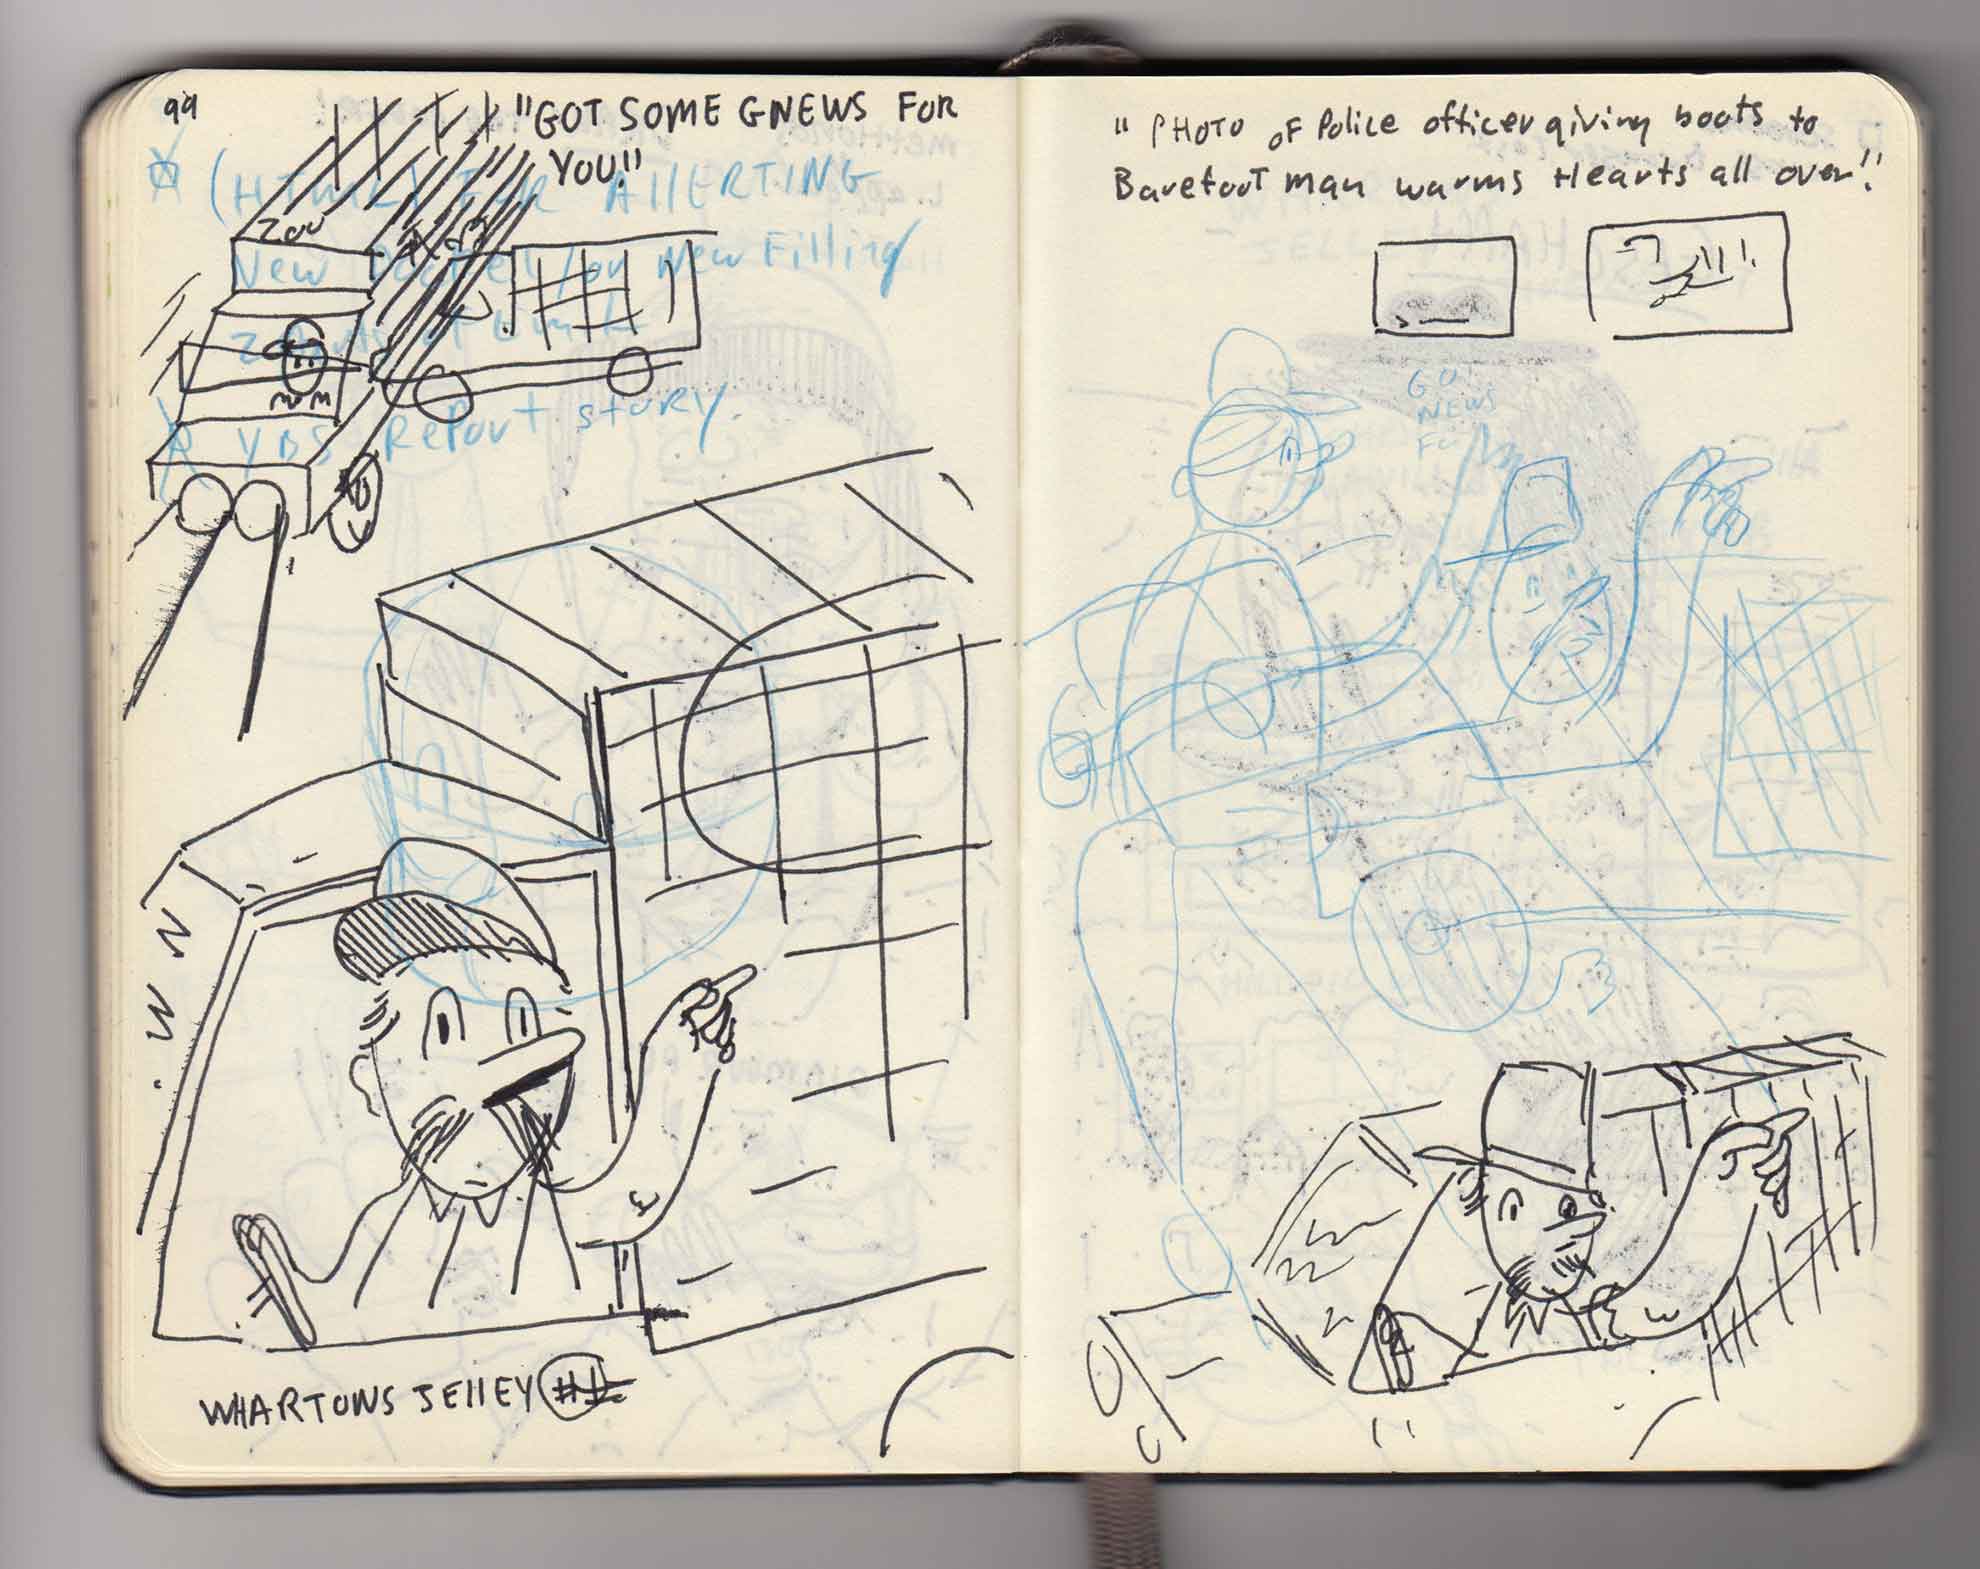 99
"GOT SOME GNEWS FOR
YOU!!
(HTML) FOR AllERTING
New for New Filling
Zoo
YBS Report story.
WHARTONS JEllEY
"PHOTO OF Police officer giving boots to
BarefooT man warms Hearts all over!!
GOT
NEWS
FO